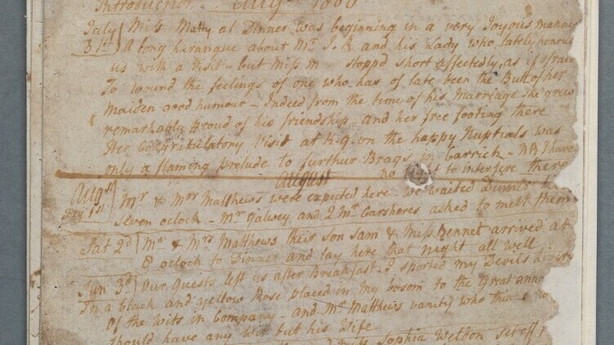 Introductor August 1800
July 31st Miss Matty at Dinner was beginning in a very Joyous manner
A long harangue about Mr. S.R and his Lady who lately honour
us with a visit - but Miss m stopp'd short affectedly, as if afraid
To wound the feelings of one who has of late been the Butt of her
maiden good humour - Indeed from the time of his Marriage She grew
remarkably Proud of his friendship, and her free footing there
Her Congratulatory visit at on the happy Nuptials was
only a flaming prelude to further Brags in Carrick - NB I have
no to interfere there
August
Augst Fry 1st Mr & Mrs Matthews were expected here we waited Dinner
Seven oclock - Mr Galwey and 2 Mr Carshores asked to meet them
Sat 2d Mr & Mrs Matthews their son Sam & Miss Bennet arrived at
8 oclock to Dinner and lay here that night all well
Sun 3d Our guests left us after Breakfast - I sported my Devils
In a black and yellow Rose placed in my bosom to the Great
of the wits in Company - and Mr Matthews vanity who thinks no
should have any wit but his Wife
Sophia